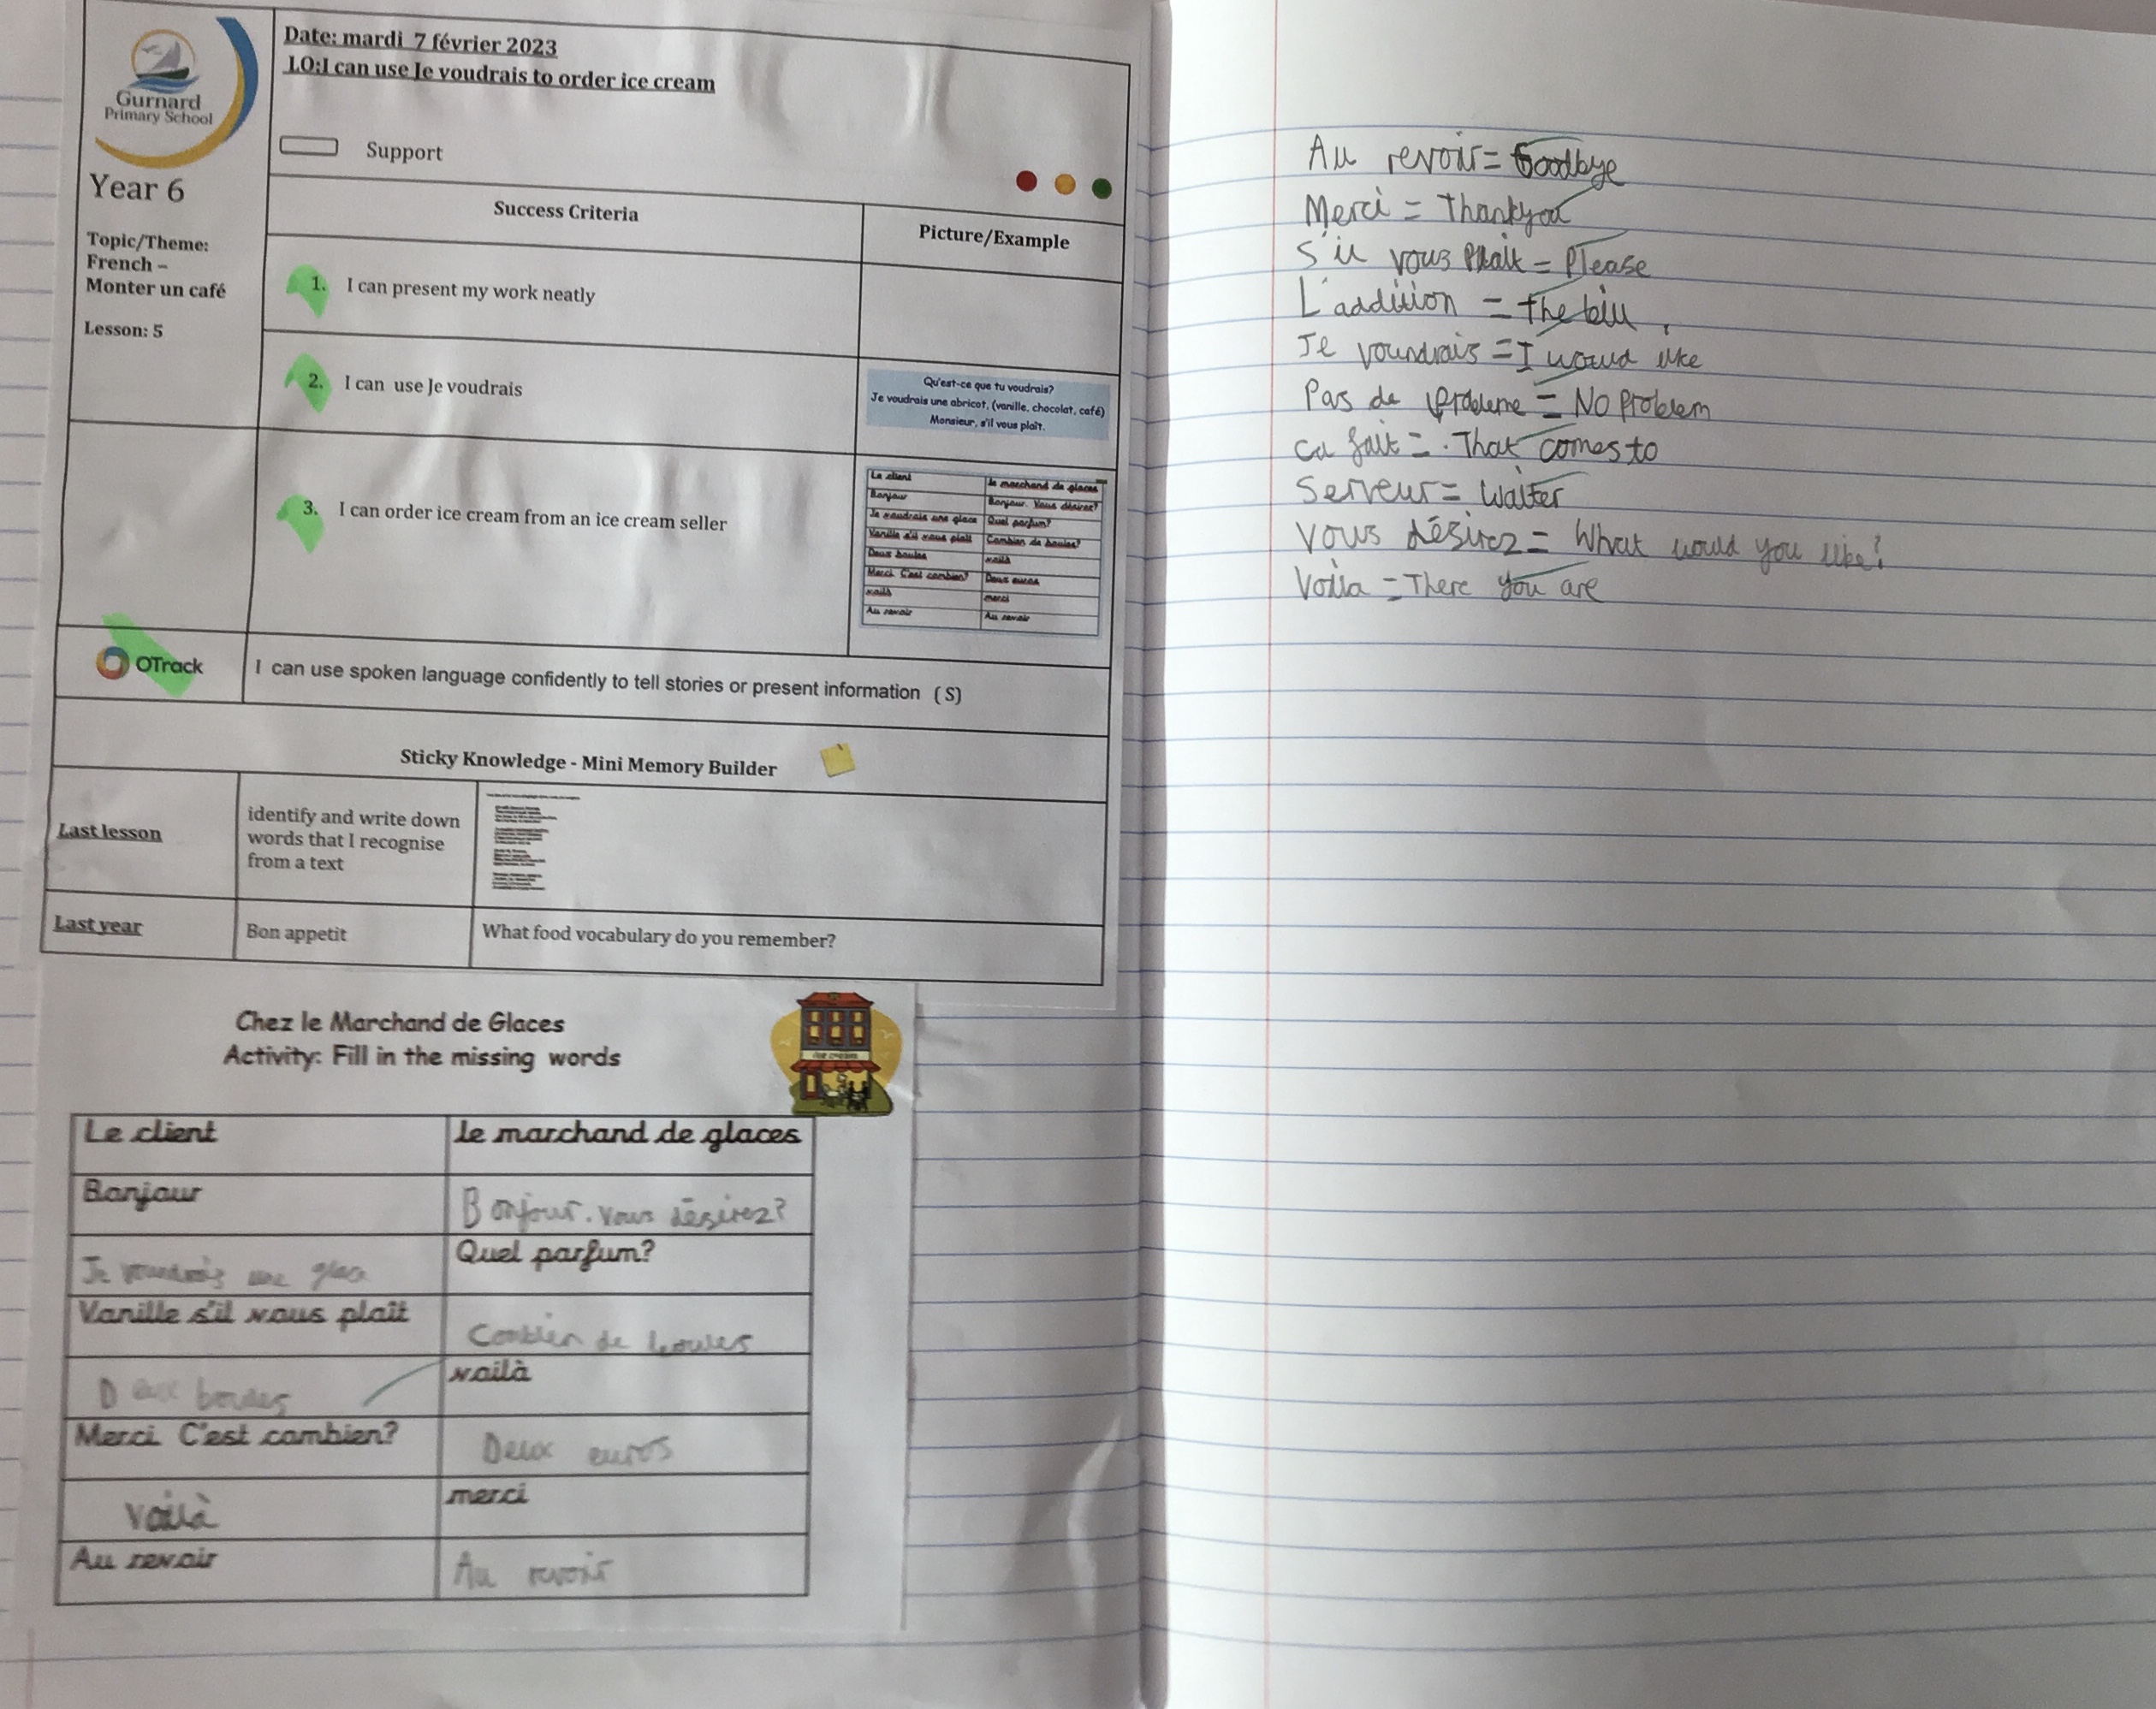 Gurnard
Primary School
Year 6
Topic/Theme:
French –
Monter un café
Lesson: 5
Date: mardi 7 février 2023
LO:I can use Je voudrais to order ice cream
Support
Success Criteria
Picture/Example
1. I can present my work neatly
2. I can use Je voudrais
Qu'est-ce que tu voudrais?
Je voudrais une abricot, (vanille, chocolat, café)
Monsieur, s'il vous plaît.
3. I can order ice cream from an ice cream seller
Le client
le marchand de glaces
Bonjour
Bonjour. Vous désirez?
Je voudrais une glace
Quel parfum?
Vanille s'il vous plaît
Combien de boules?
Deux boules
voilà
Merci. C'est combien?
Deux euros
voilà
merci
Au revoir
Au revoir
OTrack
I can use spoken language confidently to tell stories or present information (S)
Sticky Knowledge - Mini Memory Builder
Last lesson
identify and write down
words that I recognise
from a text
Last year
Bon appetit
What food vocabulary do you remember?
Chez le Marchand de Glaces
Activity: Fill in the missing words
ice cream
Le client
le marchand de glaces
Bonjour
Bonjour. Vous désirez?
Je voundrais une glace
Quel parfum?
Vanille s'il vous plaît
Combien de boules
Deux boules
voilà
Merci C'est combien?
Deux euros
Voilà
merci
Au revoir
Au revoir
Au revoir = Goodbye
Merci = Thankyou
S'il vous plait = Please
L'addition = the bill
Je voundrais = I would like
Pas de probleme = No Problem
ca fait = That comes to
Serveur = Waiter
Vous désirez = What would you like?
Voila = There you are